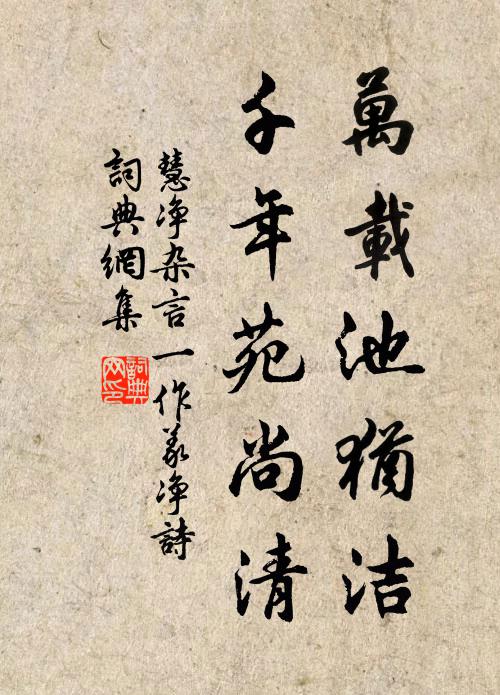 萬載池猶洁
千年苑尚清
慧净杂言一作義净詩
詞典網集
詞典網印